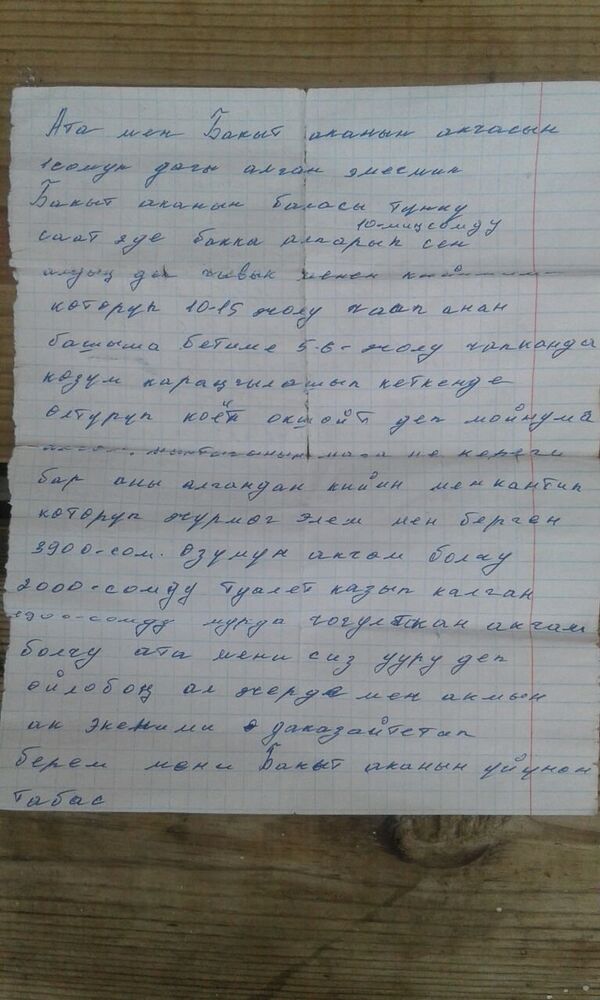 Ата мен Бакыт аканын акчасын
1 сомун дагы алган эмесмин
Бакыт аканын баласы тунку
10-миң сомду
саат 2де бакка алпарып сен
алдың да чывык менен
которуп 10-15 жолу чаап анан
башыма бетиме 5-6-жолу чапканда
көзүм караңгылашып кеткенде
өлтүрүп коёт окшойт деп мойнума
мага не кереги
бар аны алгандан кийин мен кантип
которуп журмог элем мен берген
3900-сом. озумун акчам болчу
2000-сомду туалет казып калган
1900-сомду мурда чогулткан акчам
болчу ата мени сиз ууру деп
ойлобоң ал жерде мен акмын
ак экеними даказайтетап
берем мени Бакыт аканын уйунон
табас